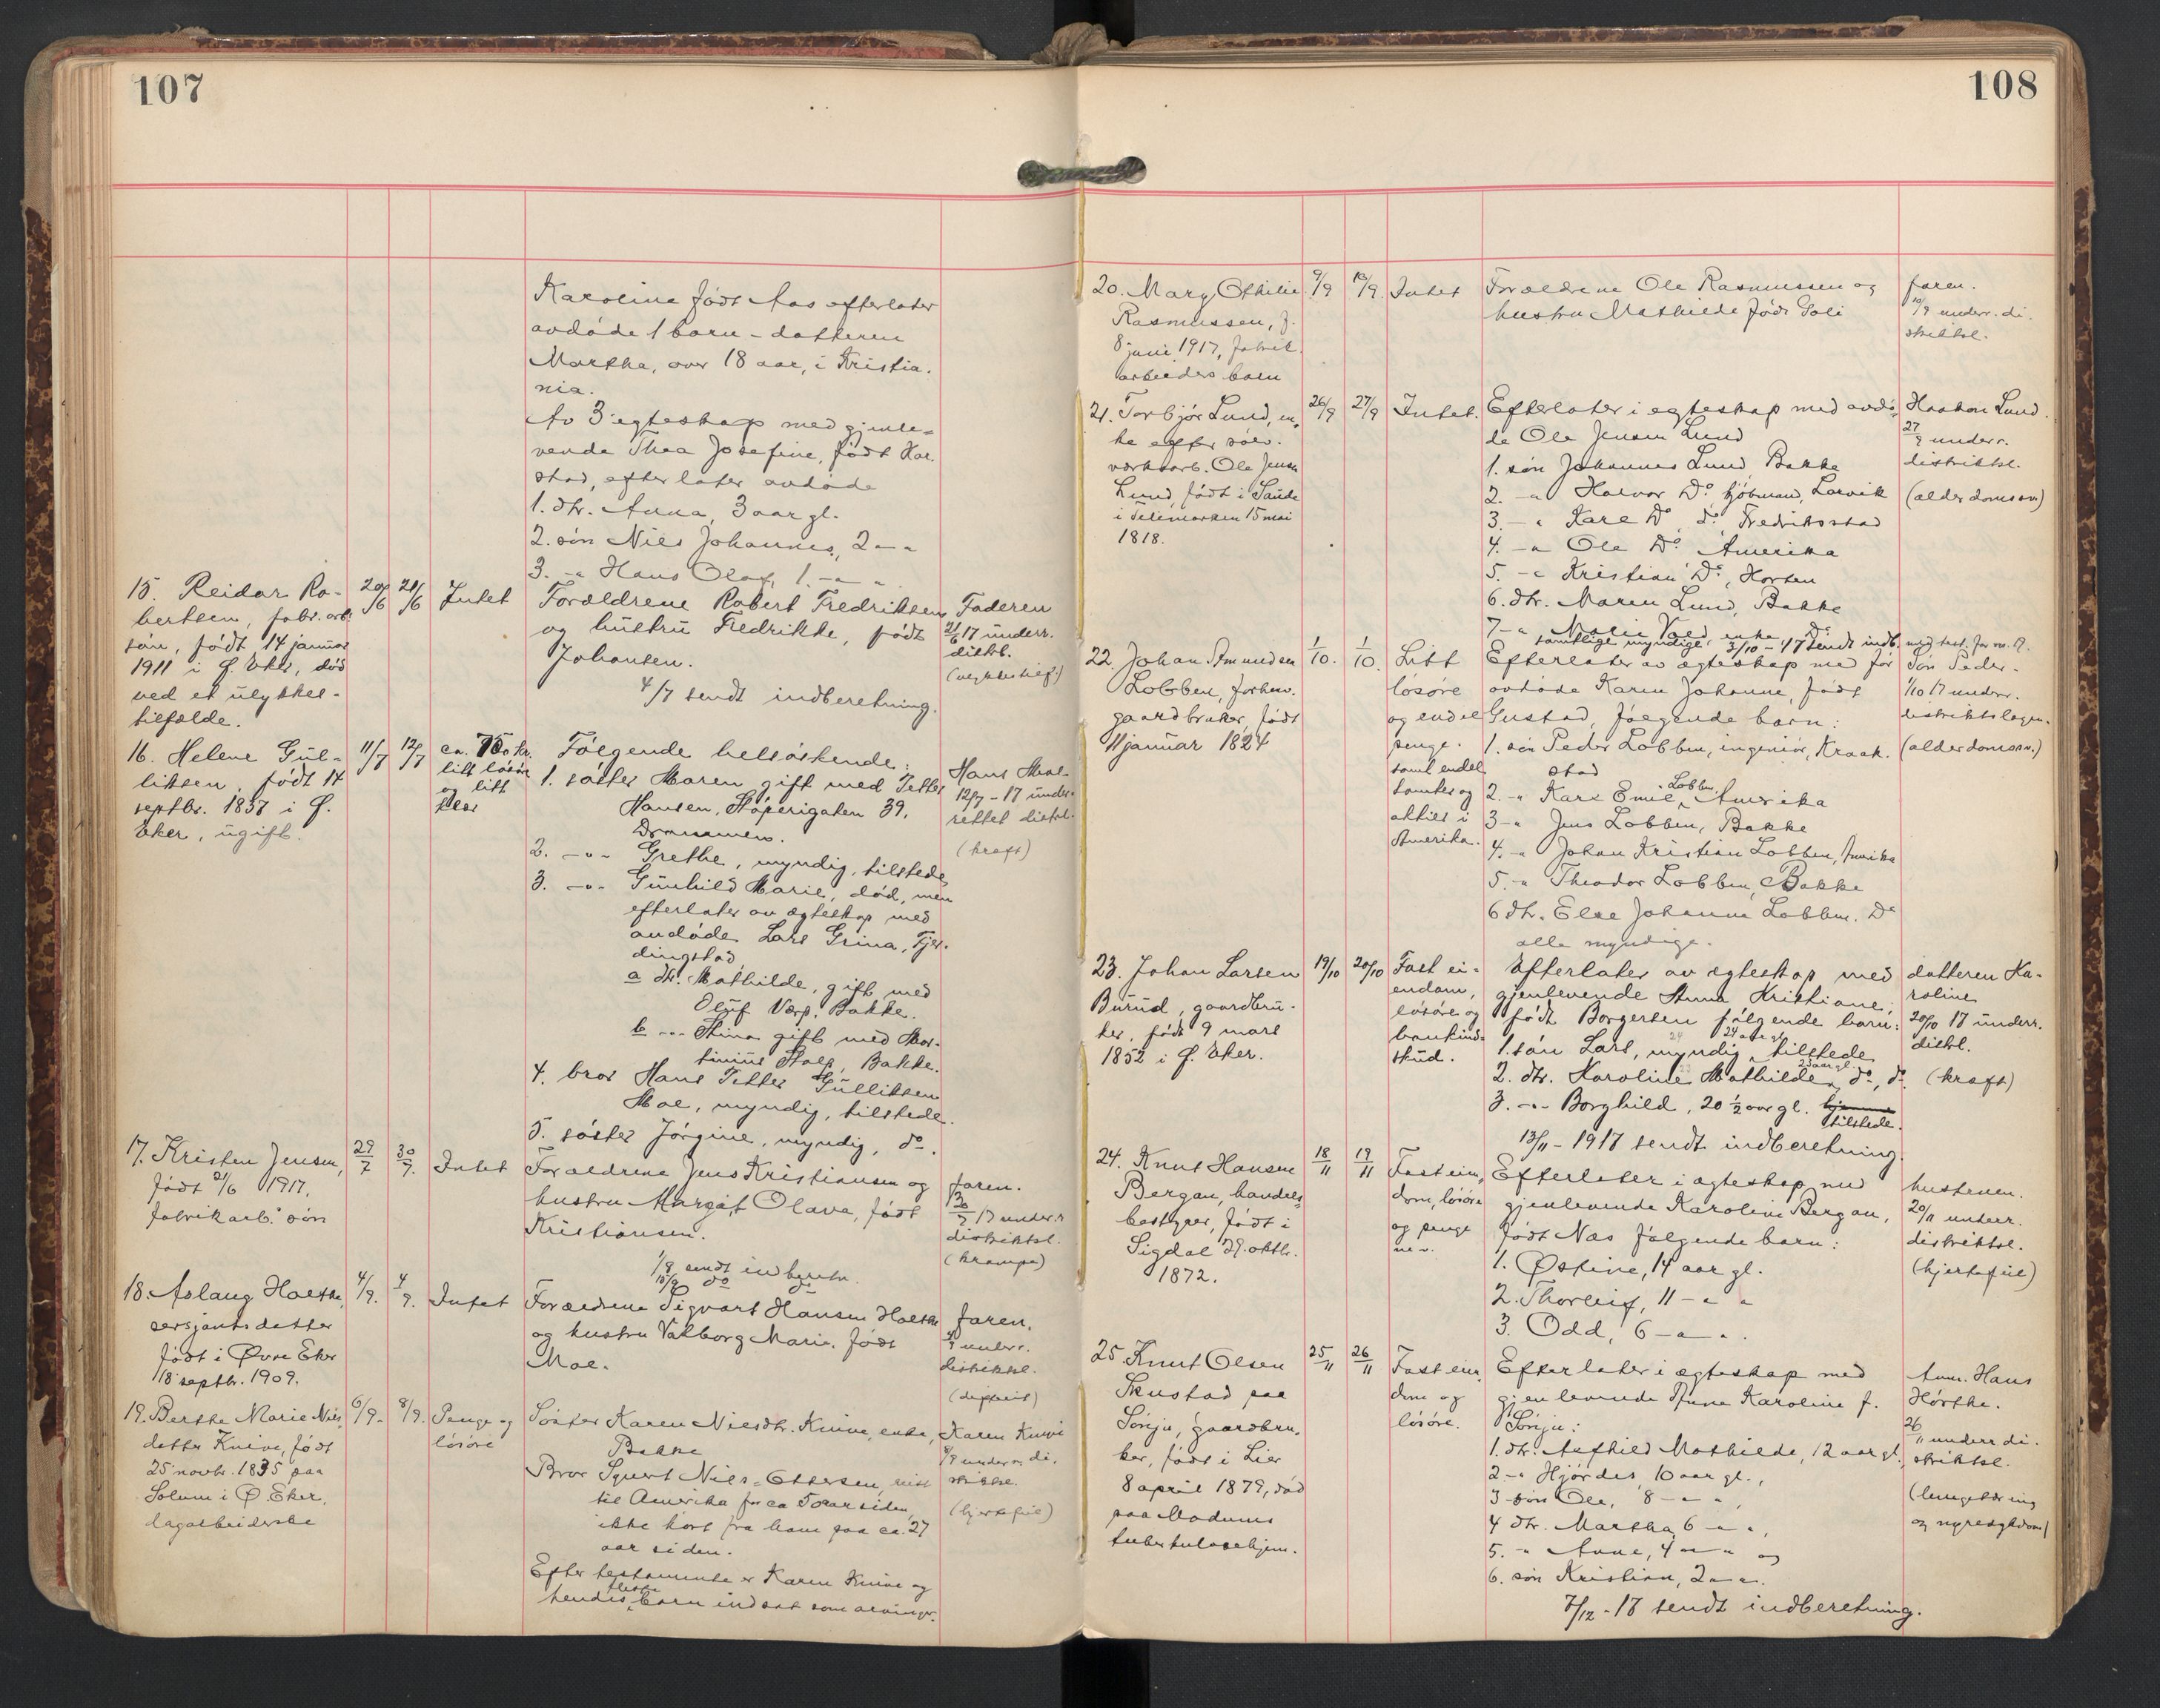 107
Karolina født Aas efterlater
avdøde 1 barn - datteren
Martha, over 18 aar, i Kristia-
nia.
Av 3 egteskap med gjenle-
vende Thea Josefine, født Kar-
stad, efterlater avdøde
1. dtr. Anna, 3 aar gl.
2. søn Nils Johannes, 2 - "
3. - " Hans Olaf, 1. - " "
15. Reidar Ro-
bertsen, fabr. arb.
søn, født 14 januar
1911 i Ø. Eker, død
ved et ulykkes-
tilfælde.
20/6
21/6
Intet
Forældrene Robert Fredriksen
og hustru Fredrikke, født
Johansen.
4/7 sendt indberetning.
Faderen
21/6 17 underr.
distr.
16. Helene Gul-
liksen, født 14
septbr. 1837 i Ø.
Eker, ugift.
11/7
12/7
ca. 700 kr.
litt løsøre
og litt
klær
Følgende helsøskende:
1. søster Maren gift med Petter
Hansen, Støperigaten 39,
Drammen.
2. - " - Grethe, myndig, tilstede
3. - " - Gunhild Marie, død, men
efterlater av ægteskap med
avdøde Lars Grina, Fjer-
dingstad
a dtr. Mathilde, gift med
Oluf Værp. Bakke.
b - " - Stina gift med Mar-
tinius Stalp, Bakke.
4. bror Hans Petter Gulliksen
Moe, myndig, tilstede.
5. søster Jørgine, myndig, do.
Hans Moe.
12/7 - 17 under-
rettet distl.
(kræft)
17. Kristen Jensen,
født 21/6 1917,
fabrikarb. søn
29/7
30/7.
Intet
Forældrene Jens Kristiansen og
hustru Margit Olava, født
Kristiansen.
1/8 sendt indberetn.
15/9 do do
faren.
30/7 17 underr.
distriktsl.
(krampe)
18. Aslaug Holthe,
sersjants datter
født i Øvre Eker
18 septbr. 1909.
4/9.
4/9.
Intet
Forældrene Sigvart Hansen Holthe
og hustru Valborg Marie, født
Moe.
faren.
4/9 underr.
distriktsl.
19. Berthe Marie Niels-
datter Knive, født
25 novbr. 1835 paa
Solum i Ø. Eker,
lagarbeiderske
6/9 -
8/9.
Penge og
løsøre
Søster Karen Nielsdtr. Knive, enke,
Bakke
Bror Syvert Niels - Ottersen, reist
til Amerika for ca 50 aar siden,
ikke hørt fra ham paa ca. 27
aar siden.
Efter testamente er Karen Knive og
hendes fleste barn indsat som arvinger.
Karen Knive
8/9 underr. di-
striktsl.
(hjertefeil)
108
20. Mary Othilie
Rasmussen, f.
8 juni 1917, fabrik-
arbeiders barn
9/9
10/9.
Intet
Forældrene Ole Rasmussen og
hustru Mathilde født Goli
faren.
10/9 underr. di-
striktsl.
21. Torbjør Lund, en-
ke efter sølv-
verksarb. Ole Jensen
Lund, født i Sande
i Telemarken 15 mai
1818.
26/9
27/9
Intet.
Efterlater i egteskap med avdø-
de Ole Jensen Lund
1. søn Johannes Lund, Bakke
2. - " Halvor Do sjømand, Larvik
3. - " Karl Do, do, Fredriksstad
4. - " Ole Do. Amerika
5. - " Kristian Do, Horten
6. dtr. Maren Lund, Bakke
7 - " enke, do
samtlige myndige, 3/10 - 17 sendt indb.
Haakon Lund.
27/9 underr.
distriktsl.
(alderdomssv.)
22. Johan Amundsen
Lobben, forhenv.
gaardbruker, født
11 januar 1824
1/10.
1/10.
Litt
løsøre
og endel
penge.
samt endel
tomter og
aktier i
Amerika.
Efterlater av ægteskap med før
avdøde Karen Johanne, født
Gustad, følgende barn:
1. søn Peder Lobben, ingeniør, Kraak-
stad
2. - " Karl Emil Lobben, Amerika
3 - " Jens Lobben, Bakke
4. - " Johan Kristian Lobben, Amerika
5. - " Theodor Lobben, Bakke
6 dtr. Else Johanna Lobben. Do
alle myndige.
Søn Peder.
1/10 17 underr.
distriktslægen.
(alderdomssv.)
23. Johan Larsen
Burud, gaardbru-
ker, født 9 mars
1852 i Ø. Eker.
19/10
20/10
Fast ei-
endom,
løsøre og
bankind-
skud.
Efterlater av ægteskap med
gjenlevende Anna Kristiane,
født Borgersen følgende barn:
1. søn Lars, myndig 24 aar gl. tilstede
2. dtr. Karoline Mathilde 23 aar gl. do, do
3. - " - Borghild, 20 1/2 aar gl. hjemme
tilstede.
13/11 - 1917 sendt indberetning.
datteren Ka-
roline
20/10 17 underr.
distl.
(kræft)
24. Knut Hansen
Bergan, handels-
bestyrer, født i
Sigdal 29. oktbr.
1872.
18/11
19/11
Fast eien-
dom, løsøre
og penge
m.v.
Efterlater i ægteskap med
gjenlevende Karoline Bergan,
født Næs følgende barn:
1. Østine, 14 aar gl.
2. Thorleif, 11 - " "
3. Odd, 6 - " - ".
hustruen.
20/11 underr.
distriktsl.
(hjertefeil)
25. Knut Olsen
Skustad paa
Sønju, gaardbru-
ker, født i Lier
8 april 1879, død
paa Modums
tuberkulosehjem.
25/11
26/11
Fast eien-
dom og
løsøre.
Efterlater i ægteskap med
gjenlevende Anna Karoline f.
Sønju:
1. dtr. Asthild Mathilde, 12 aar gl.,
2 - " Hjørdis, 10 aar gl.,
3 søn Ole, 8 - " - ",
4 dtr. Martha, 6 - " - ",
5. - " Anne, 4 - " - " og
6. søn Kristian, 2 - " - ".
7/12 - 17 sendt indberetning.
Anm. Hans
Hørthe.
26/11 underr. di-
striktsl.
(lungetæring
og nyresykdom)